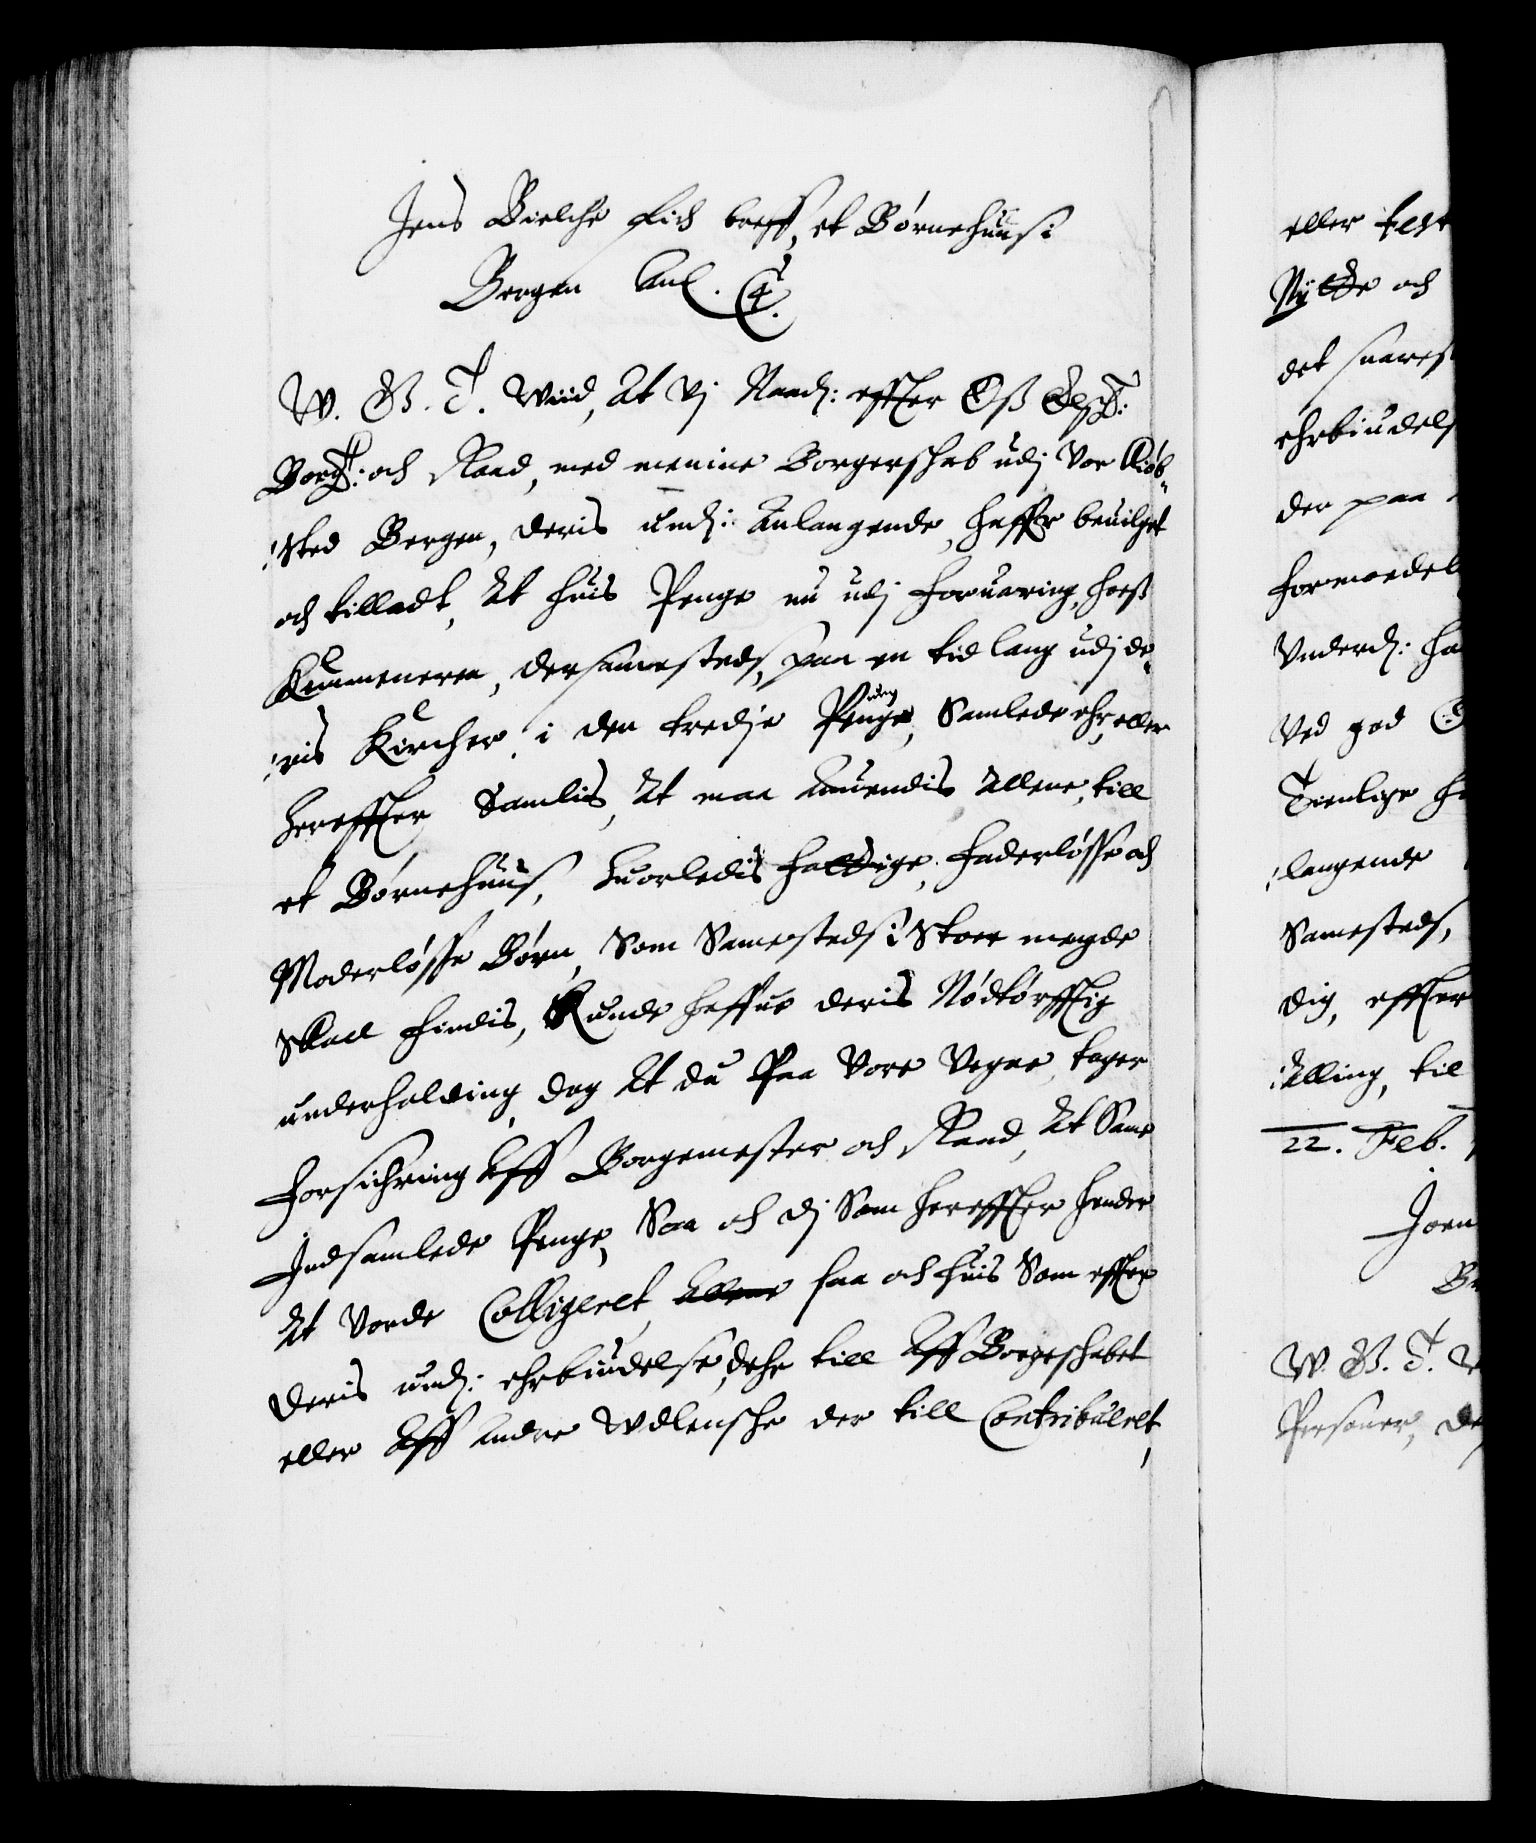 Jens Bielche fich breff, et Børnehuus i
Bergen Anl.
W. G. T. Wiid, At Vj Naad: effter Oß Elsk:
Borg: och Raad, med menine Borgerschab udj Vor Kiøb-
sted Bergen, deris und: Anlangende, haffr beuilget
och tilladt, At huis Penge nu udj foruaring, hoeß
Kemmeneren, dersamesteds, paa en tid lang udj de-
ris Kircher i den tredje Pung, Samlede ehr, eller
hereffter Samlis, At maa Anuendis Allene, till
et Børnehuus, huorledis fattige, faderløsse och
Moderløsse Børn, Som Samesteds i Stoer megde
Skall findis, Kunde haffue deris Nødtørfftig
underholding, dog At du Paa Vore Vegne, tager
forsichring Aff Borgemester och Raad, At Same
Indsamlede Penge, Saa och dj Som hereffter hender
At Vorde Colligeret, saa och huis Som effter
deris und: ehrbiudelse, dehr till Aff Borgerschabet
eller Aff Andre Wdlensche der till Contribueret,
eller
och
det
ehrbiudels
der paa
formoedel
Underd: ha
Ved god
Tienlige
langende
Samesteds,
dig, effter
Alling, til
22. Feb.
Joen
W. G. T.
Personer, de